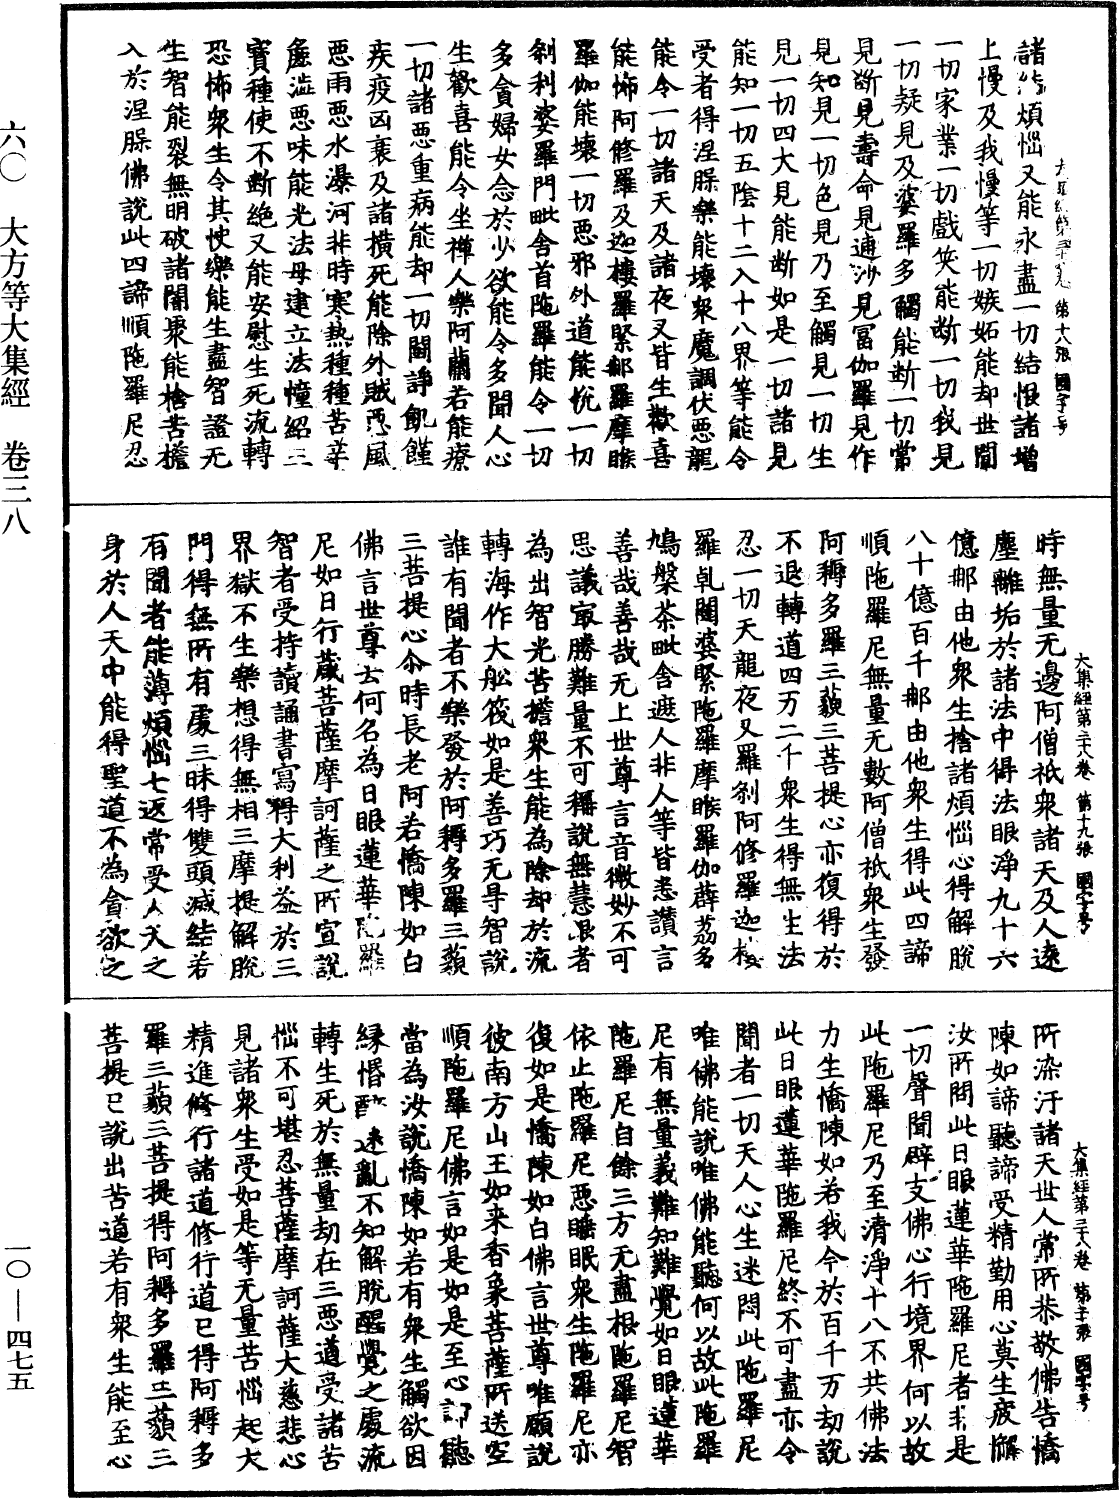 大集經第三十八卷 第十八張 國字号
諸結煩惱又能永盡一切結恨諸增
上慢及我慢等一切嫉妬能却世間
一切家業一切戲笑能断一切我見
一切疑見及婆羅多觸能断一切常
見断見壽命見逋沙見冨伽羅見作
見知見一切色見乃至觸見一切生
見一切四大見能断如是一切諸見
能知一切五陰十二入十八界等能令
受者得涅槃樂能壞衆魔調伏悪龍
能令一切諸天及諸夜叉皆生歡喜
能怖阿修羅及迦樓羅緊那羅摩睺
羅伽能壊一切悪邪外道能悅一切
刹利婆羅門毗舍首陁羅能令一切
多貪婦女念於少欲能令多聞人心
生歡喜能令坐禪人樂阿蘭若能療
一切諸悪重病能却一切闘諍飢饉
疾疫凶衰及諸橫死能除外賊悪風
悪雨悪水瀑河非時寒熱種種苦辛
麁澁悪味能光法母建立法幢紹三
寶種使不断絶又能安慰生死流轉
恐怖衆生令其快樂能生盡智證无
生智能裂無明破諸闇聚能捨苦擔
入於涅槃佛說此四諦順陁羅尼忍
大集經第三十八卷 第十九張 國字号
時無量无邊阿僧祇衆諸天及人遠
塵離垢於諸法中得法眼淨九十六
億那由他衆生捨諸煩惱心得解脫
八十億百千那由他衆生得此四諦
順陁羅尼無量无數阿僧祇衆生發
阿耨多羅三藐三菩提心亦復得於
不退轉道四万二千衆生得無生法
忍一切天龍夜叉羅刹阿修羅迦樓
羅乹闥婆緊陁羅摩睺羅伽薜荔多
鳩槃茶毗舍遮人非人等皆悉讃言
善哉善哉无上世尊言音微妙不可
思議㝡勝難量不可稱說無慧眼者
為出智光苦擔衆生能為除却於流
轉海作大舩筏如是善巧无导智說
誰有聞者不樂發於阿耨多羅三藐
三菩提心尒時長老阿若憍陳如白
佛言世尊云何名為日眼蓮華陁羅
尼如日行蔵菩薩摩訶薩之所宣說
智者受持讀誦書寫得大利益於三
界獄不生樂想得無相三摩提解脫
門得無所有處三昧得雙頭減結若
有聞者能薄煩惱七返常受人天之
身於人天中能得聖道不為貪欲之
大集經第三十八卷 第二十張 國字号
所染汙諸天世人常所恭敬佛告憍
陳如諦聽諦受精勤用心莫生疲懈
汝所問此日眼蓮華陁羅尼者非是
一切聲聞辟支佛心行境界何以故
此陁羅尼乃至清淨十八不共佛法
力生憍陳如若我今於百千万劫說
此日眼蓮華陁羅尼終不可盡亦令
聞者一切天人心生迷悶此陁羅尼
唯佛能說唯佛能聽何以故此陁羅
尼有無量義難知難覺如日眼蓮華
陁羅尼自餘三方无盡根陁羅尼智
依止陁羅尼悪睡眠衆生陁羅尼亦
復如是憍陳如白佛言世尊唯願說
彼南方山王如来香象菩薩所送空
順陁羅尼佛言如是如是至心諦聽
當為汝說憍陳如若有衆生觸欲因
縁惛醉迷亂不知解脫醒覺之處流
轉生死於無量劫在三悪道受諸苦
惱不可堪忍菩薩摩訶薩大慈悲心
見諸衆生受如是等无量苦惱起大
精進修行諸道修行道已得阿耨多
羅三藐三菩提得阿耨多羅三藐三
菩提已說出苦道若有衆生能至心
六〇 大方等大集經 卷三八
一〇—四七五